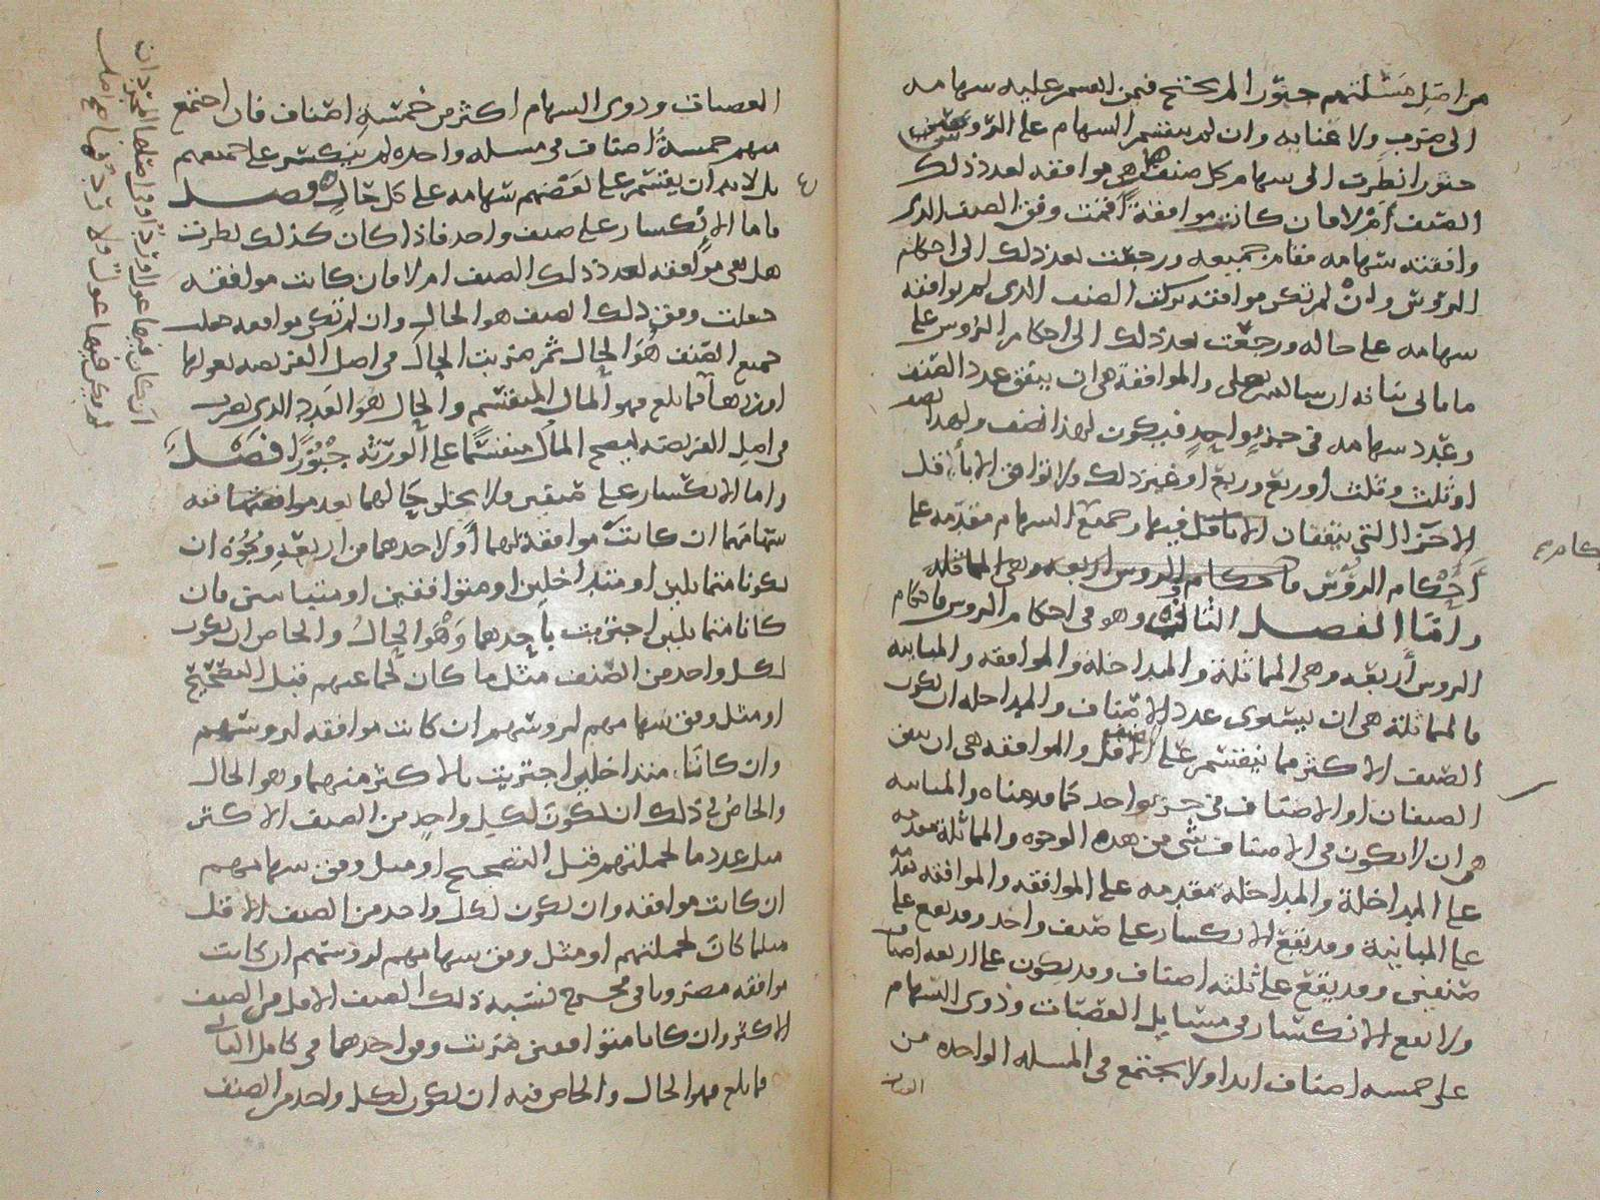 من اصل مسئلتهم جبورا لم يحتج فمن انقسم عليه سهامه
الى ضرب ولا عنايه وان لم ينقسم السهام على الروس
جبورا نظرت الى سهام كل صنف هل هي موافقه لعدد ذلك
الصنف ام لا فان كانت موافقة اقمت وفق الصنف الذي
وافقته سهامه مقام جميعه ورجعت بعد ذلك الى احكام
الروس وان لم تكن موافقه تركت الصنف الذي لم يوافقه
سهامه على حاله ورجعت بعد ذلك الى احكام الروس على
ما ياتي بيانه ان شا الله تعلى والموافقة هي ان يتفق عدد الصنف
وعدد سهامه في جزو واحد فيكون لهذا نصف ولهذا نصف
او ثلث وثلث او ربع وربع او غير ذلك ولا توافق الا باقل
الاجزا التي يتفقان فيها وجميع السهام مقدمه على
احكام الروس
واما الفصل الثالث وهو في احكام الروس فاحكام
الروس اربعه وهي المماثلة والمداخلة والموافقه والمباينه
فالمماثلة هي ان يستوى عدد الاصناف والمداخله ان يكون
الصنف الاكثر مما ينقسم على الاقل والموافقه هي ان يتفق
الصنفان او الاصناف في جزو واحد كما قدمناه والمباينه
هي ان لا يكون في الاصناف شي من هذه الوجوه والمماثلة مقدمه
على المداخلة والمداخلة مقدمه على الموافقه والموافقه مقدمه
على المباينة وقد يقع الانكسار على صنف واحد وقد يقع على
صنفين وقد يقع على ثلثه اصناف وقد يكون على اربعه اصناف
ولا يقع الانكسار في مسايل العصبات وذوى السهام
على خمسه اصناف ابدا ولا يجتمع في المسله الواحده من
العصبات
العصبات وذوى السهام اكثر من خمسة اصناف فان اجتمع
منهم خمسة اصناف في مسله واحده لم ينكسر على جميعهم
بل لا بد ان ينقسم على بعضهم سهامه على كل حال فصل
فاما الانكسار على صنف واحد فاذا كان كذلك نظرت
هل هي موافقه لعدد ذلك الصنف ام لا فان كانت موافقه
جعلت وفق ذلك الصنف هو الحال وان لم تكن موافقه جعلت
جميع الصنف هو الحال ثم ضربت الحال في اصل الفريضه بعولها
او ردها فما بلغ فهو المال المنقسم والحال هو العدد الذي يضرب
في اصل الفريضه ليصح المال منقسما على الورثه جبورا فصل
واما الانكسار على صنفين فلا يخلو حالهما بعد موافقة
سهامهما ان كانت موافقة لهما او لاحدهما من اربعة وجوه ان
يكونا متماثلين او متداخلين او متوافقين او متباينين فان
كانا متماثلين اجتزيت باحدهما وهو الحال والخاص ان يكون
لكل واحد من الصنف مثل ما كان لجماعتهم قبل التصحيح
او مثل وفق سهامهم لروسهم ان كانت موافقه لروسهم
وان كانتا متداخلين اجتزيت بالاكثر منهما وهو الحال
والخاص في ذلك ان يكون لكل واحد من الصنف الاكثر
مثل عدد ما لجملتهم قبل التصحيح او مثل وفق سهامهم
ان كانت موافقه وان يكون لكل واحد من الصنف الاقل
مثلما كان لجملتهم او مثل وفق سهامهم لروسهم ان كانت
موافقه مضروبا في مخرج نسبة ذلك الصنف الاقل من الصنف
الاكثر وان كانا متوافقين ضربت وفق احدهما في كامل الثاني
فما بلغ فهو الحال والخاص فيه ان يكون لكل واحد من الصنف